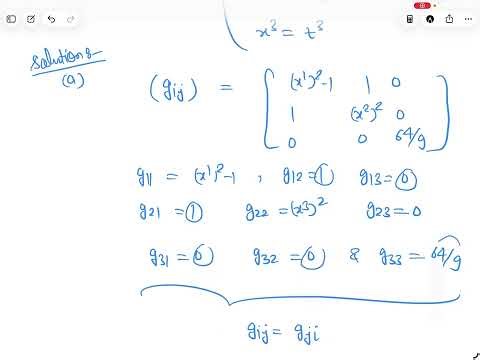 x³ = z³
Solutions
(a)
(gij) = [ (x¹)²-1 1 0
1 (x²)² 0
0 0 64/9 ]
g11 = (x¹)²-1 , g12 = 1 g13 = 0
g21 = 1 g22 = (x3)² g23 = 0
g31 = 0 g32 = 0 & g33 = 64/9
gij = gji